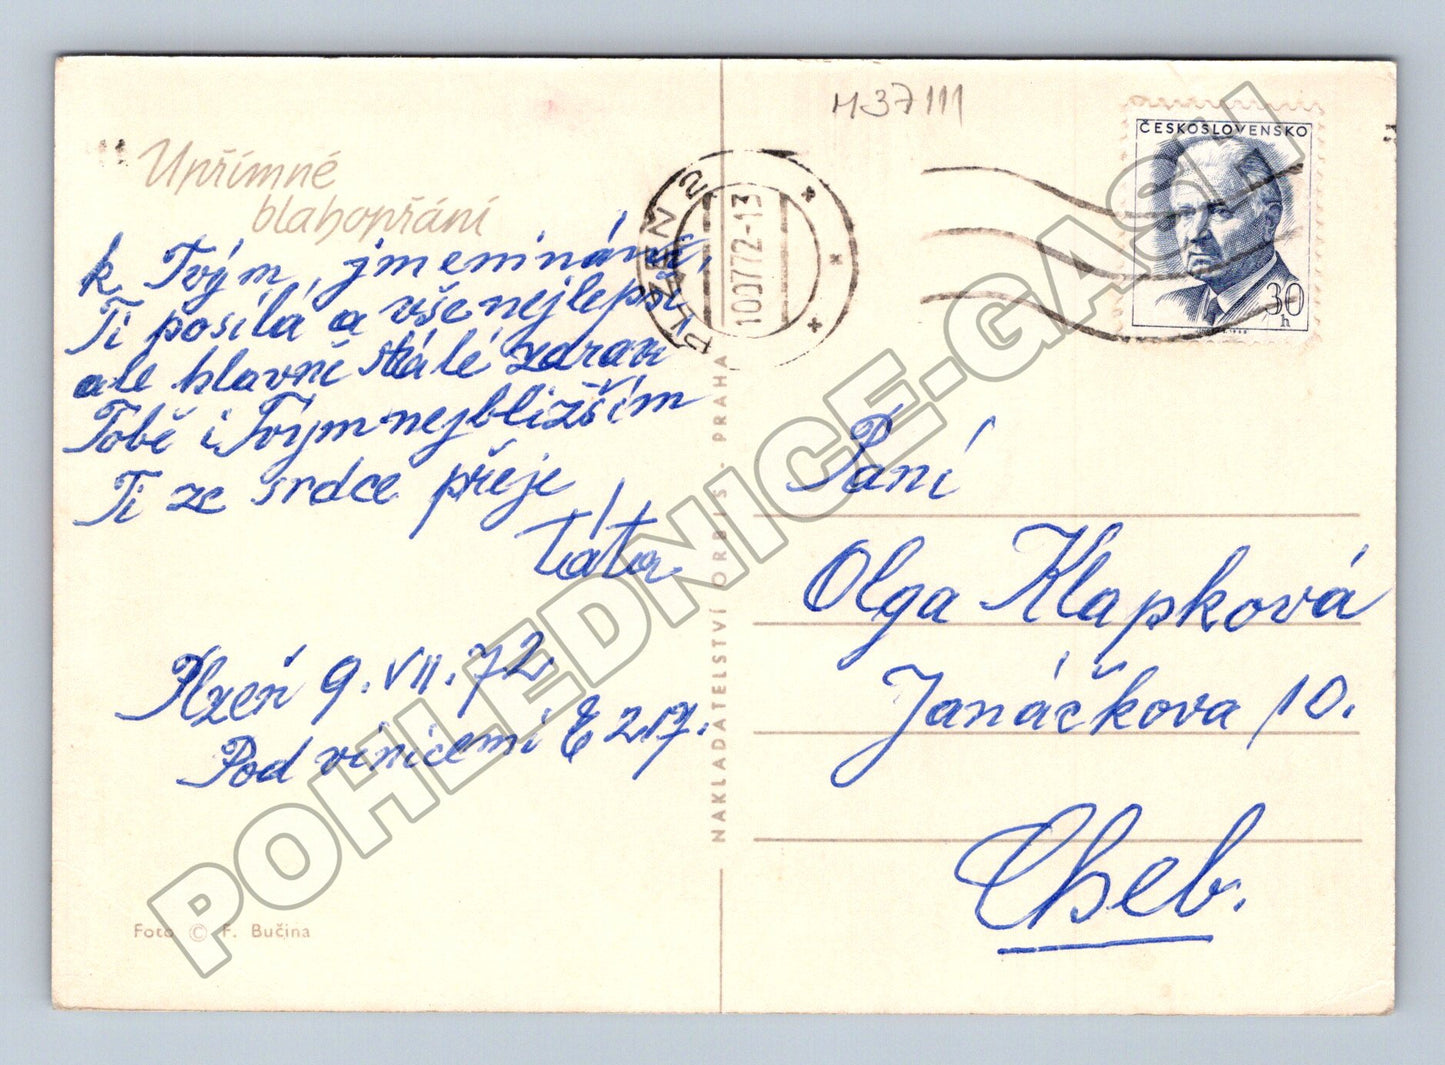 M37111
Upřímné
blahopřání
k Tvým jmeninám,
Ti posílá a vše nejlepší,
ale hlavně stálé zdraví
Tobě i Tvým nejbližším
Ti ze srdce přeje
táta
Plzeň 9. VII. 72.
Pod vinicemi E 217.
Foto © F. Bučina
NAKLADATELSTVÍ ORBIS - PRAHA
PLZEŇ 2
100772-13
ČESKOSLOVENSKO
30
h
Paní
Olga Klapková
Janáčkova 10.
Cheb.
POHLEDNICE-GASH